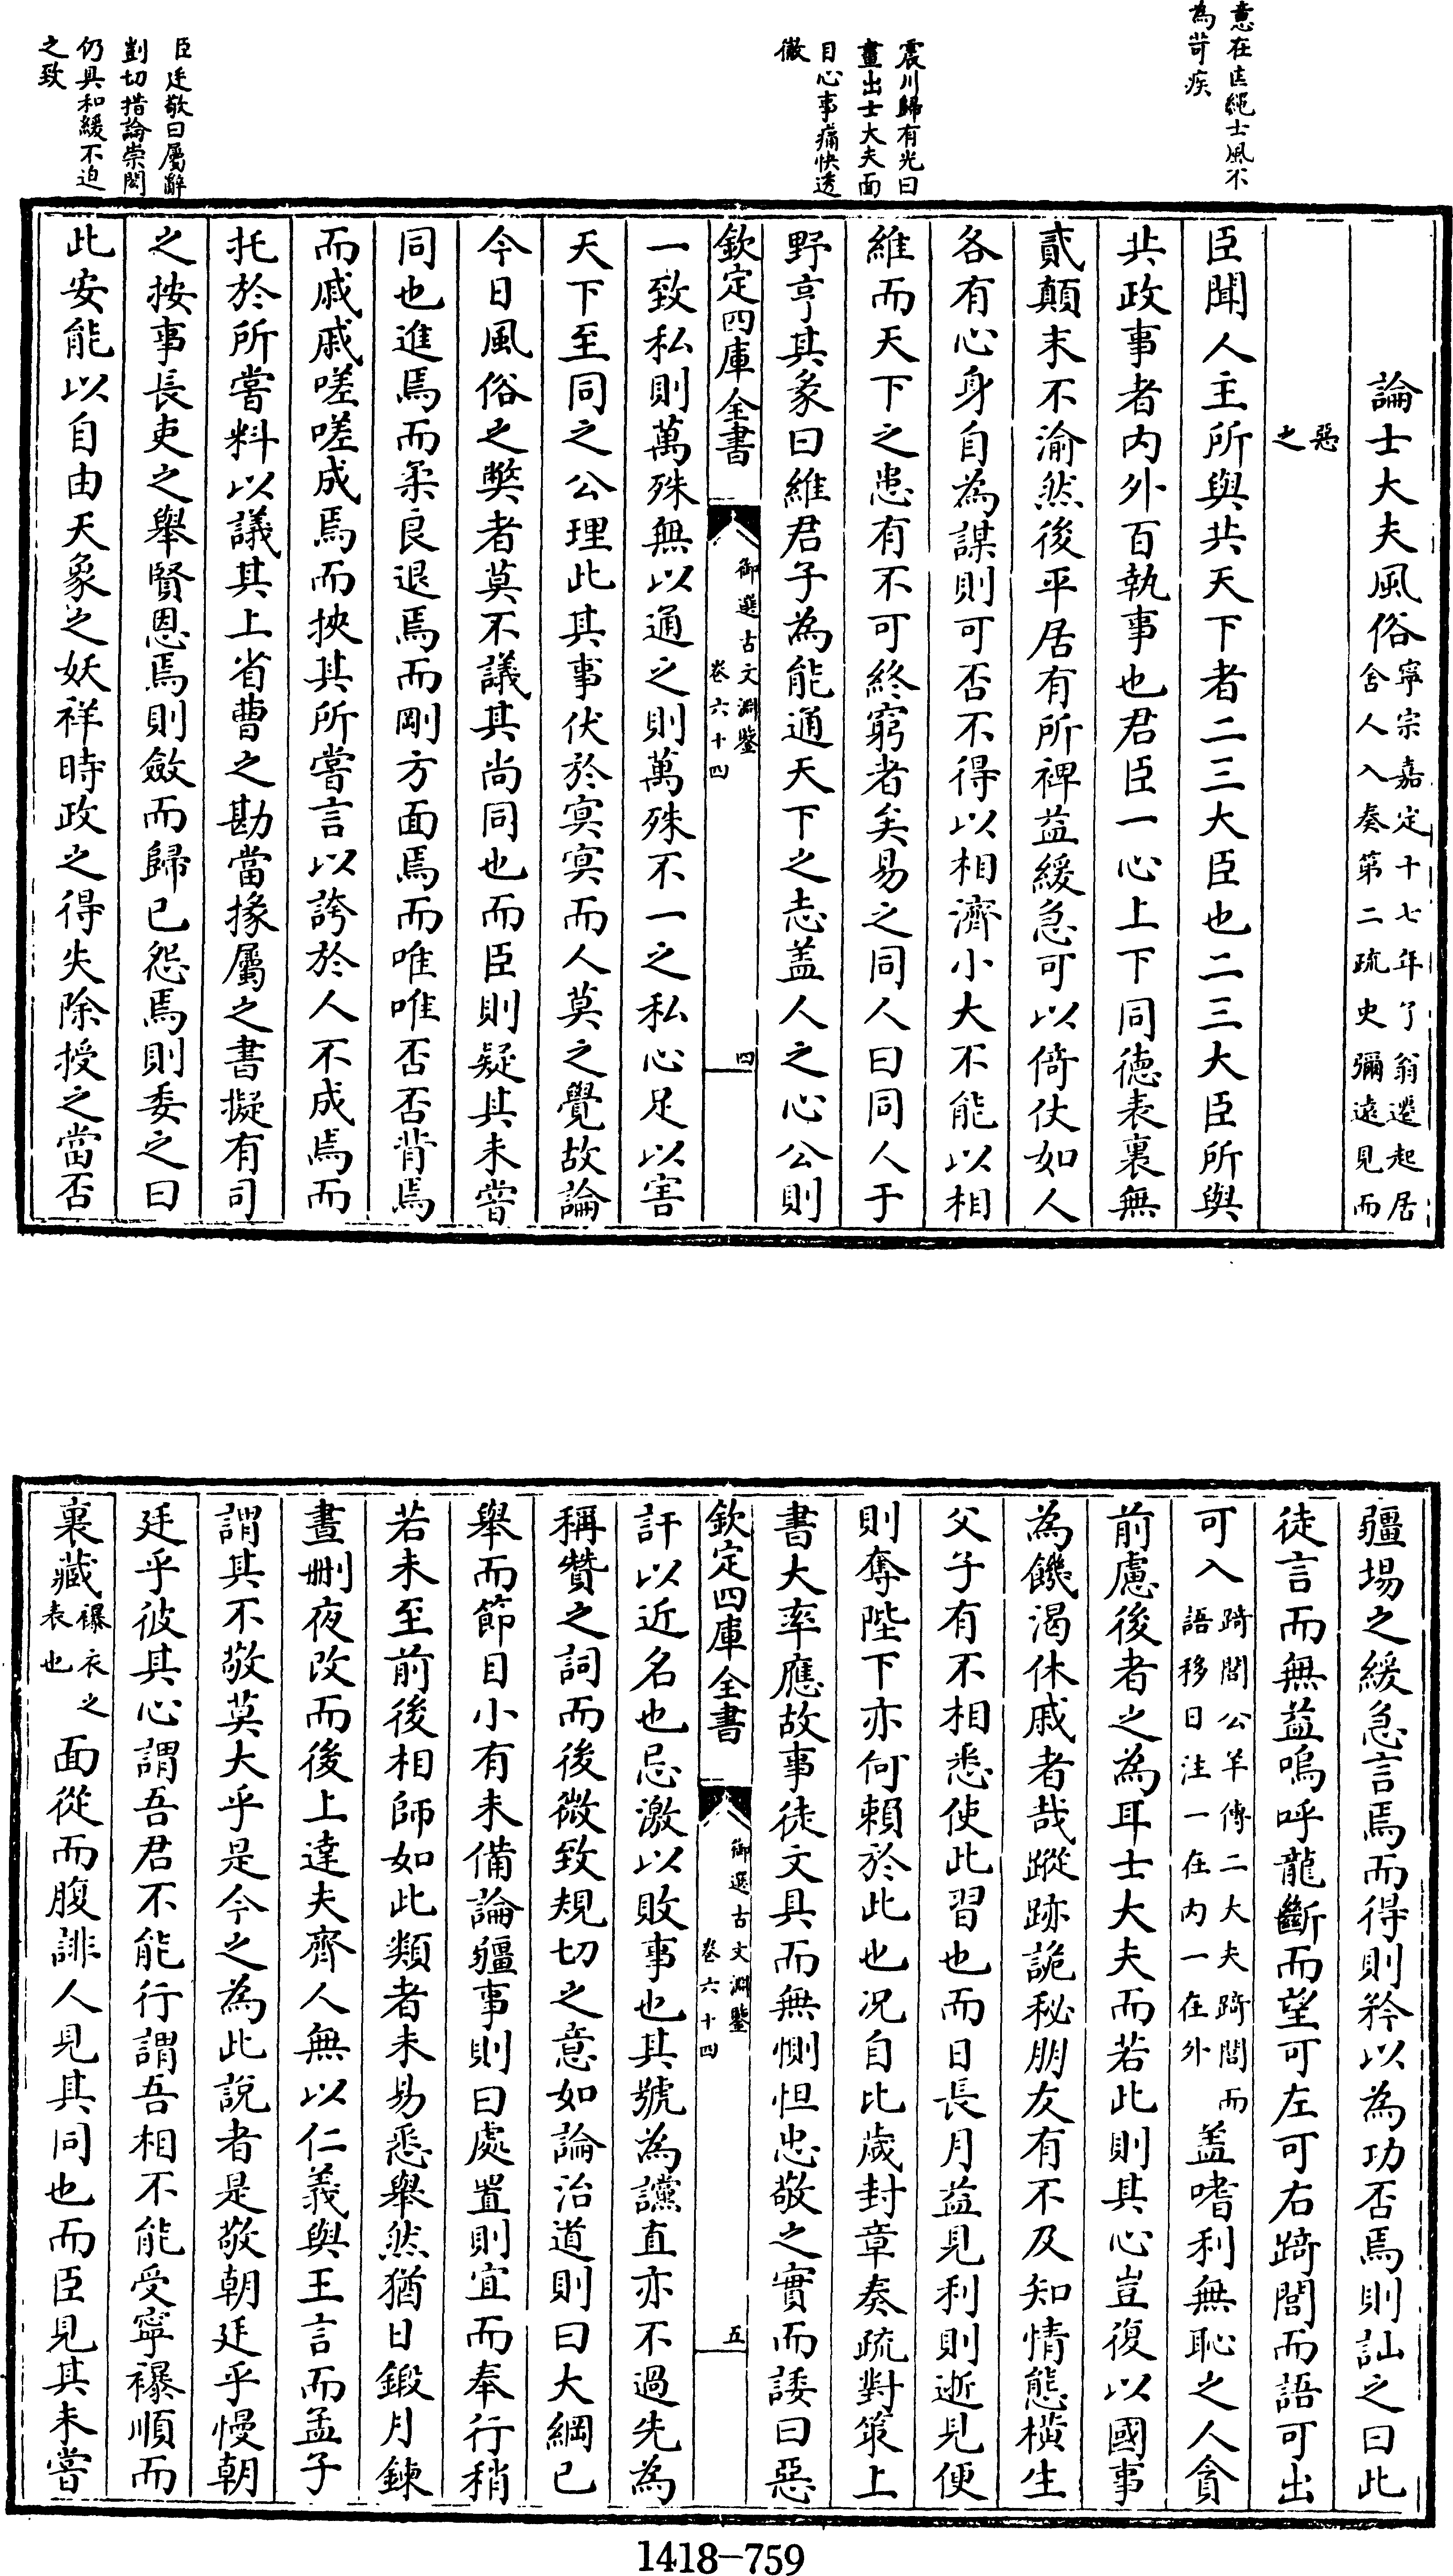 意在匡繩士風不
為苛疾
震川歸有光曰
畫出士大夫面
目心事痛快透
徹
臣廷敬曰屬辭
剴切措論崇閎
仍具和緩不迫
之致
論士大夫風俗寧宗嘉定十七年了翁遷起居
舍人入奏第二疏史彌遠見而
惡
之
臣聞人主所與共天下者二三大臣也二三大臣所與
共政事者内外百執事也君臣一心上下同徳表裏無
貳顛末不渝然後平居有所禆益緩急可以倚仗如人
各有心身自為謀則可否不得以相濟小大不能以相
維而天下之患有不可終窮者矣易之同人曰同人于
野亨其彖曰維君子為能通天下之志盖人之心公則
欽定四庫全書
御選古文淵鑒
卷六十四
四
一致私則萬殊無以通之則萬殊不一之私心足以害
天下至同之公理此其事伏於冥冥而人莫之覺故論
今日風俗之獘者莫不議其尚同也而臣則疑其未嘗
同也進焉而柔良退焉而剛方面焉而唯唯否否背焉
而戚戚嗟嗟成焉而挾其所嘗言以誇於人不成焉而
托於所嘗料以議其上省曹之勘當掾屬之書擬有司
之按事長吏之舉賢恩焉則斂而歸已怨焉則委之曰
此安能以自由天象之妖祥時政之得失除授之當否
疆場之緩急言焉而得則矜以為功否焉則訕之曰此
徒言而無益嗚呼龍斷而望可左可右踦閭而語可出
可入踦閭公羊傳二大夫踦閭而
語移日注一在内一在外
盖嗜利無恥之人貪
前慮後者之為耳士大夫而若此則其心豈復以國事
為饑渴休戚者哉蹤跡詭秘朋友有不及知情態橫生
父子有不相悉使此習也而日長月益見利則逝見便
則奪陛下亦何賴於此也况自比歲封章奏疏對策上
書大率應故事徒文具而無惻怛忠敬之實而諉曰惡
欽定四庫全書
御選古文淵鑒
卷六十四
五
訐以近名也忌激以敗事也其號為讜直亦不過先為
稱贊之詞而後微致規切之意如論治道則曰大綱已
舉而節目小有未備論疆事則曰處置則宜而奉行稍
若未至前後相師如此類者未易悉舉然猶日鍛月鍊
晝刪夜改而後上達夫齊人無以仁義與王言而孟子
謂其不敬莫大乎是今之為此説者是敬朝廷乎慢朝
廷乎彼其心謂吾君不能行謂吾相不能受寧襮順而
裏藏襮衣之
表也
面從而腹誹人見其同也而臣見其未嘗
1418-759